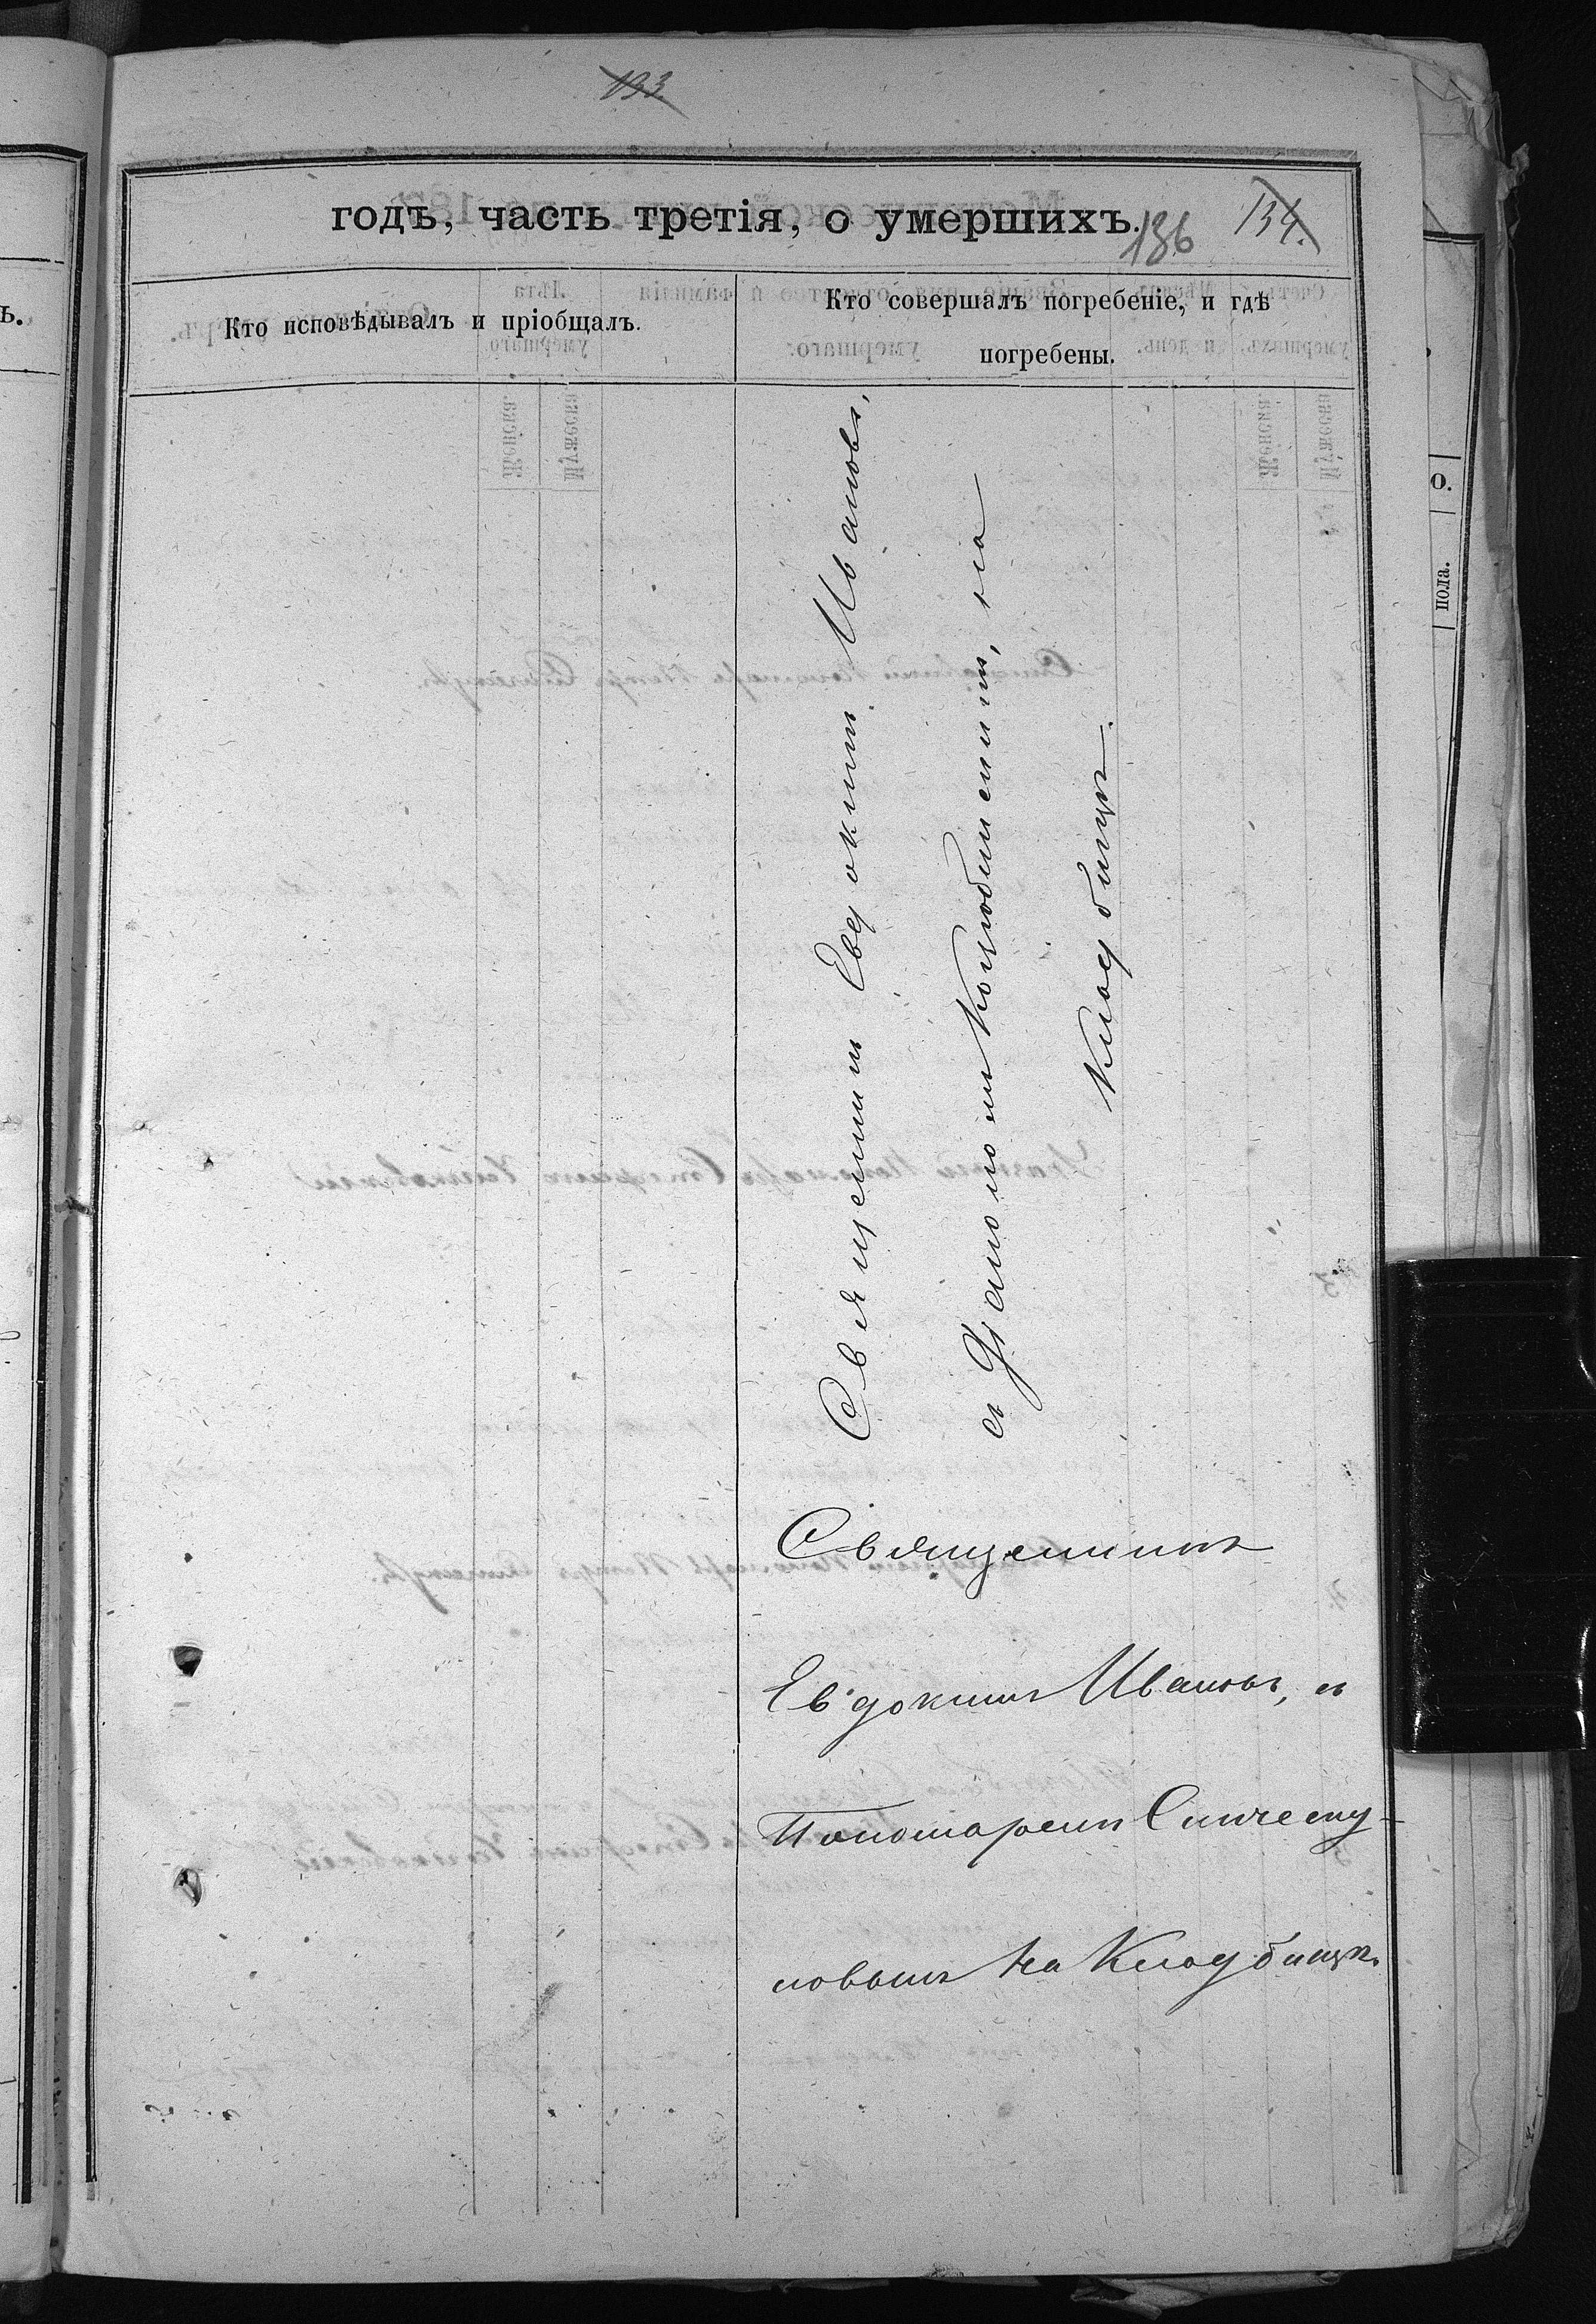 133
годъ, часть третія, о умершихъ.
136 134.
Кто исповѣдывалъ и пріобщалъ.
Кто совершалъ погребеніе, и гдѣ
погребены.
Священникъ Евдокимъ Ивановъ,
съ
на
Кладбищѣ.
Священникъ
Евдокимъ Ивановъ, съ
Пономаремъ Синчеку-
ловымъ на Кладбищѣ.
О.
пола.